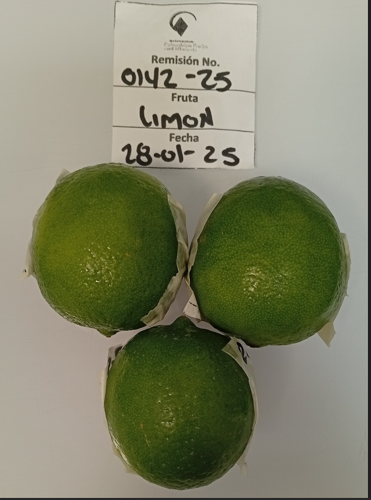 Remisión No.
0142-25
Fruta
LIMON
Fecha
28-01-25